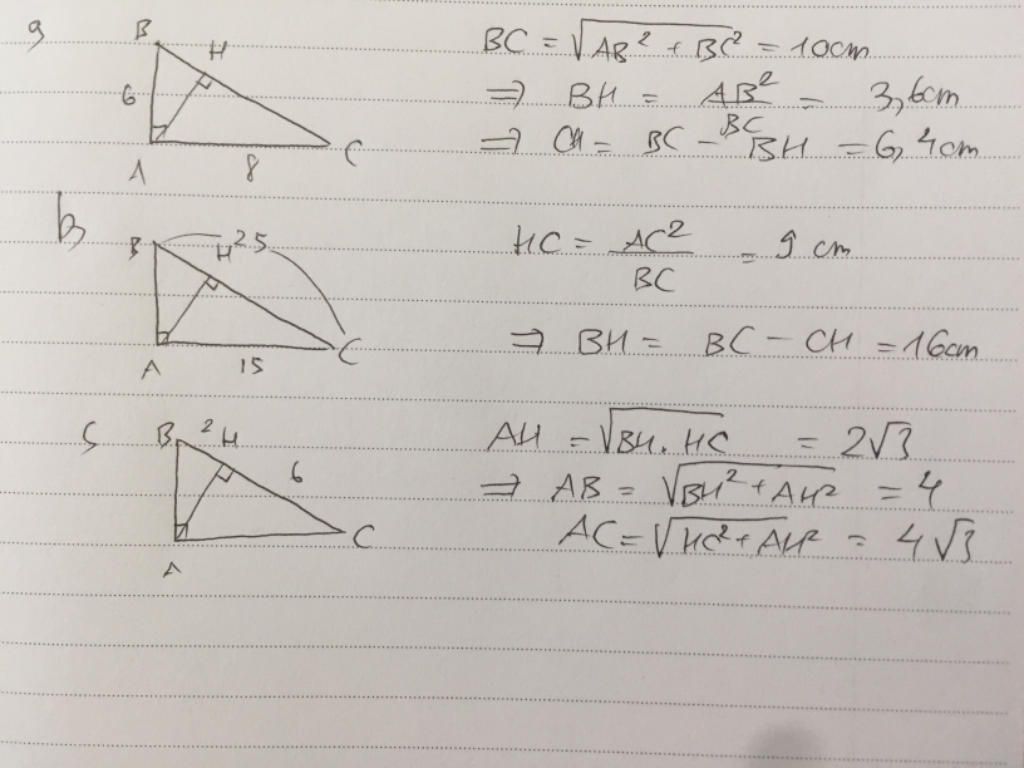 a
B H
6
A 8 C
BC = √(AB² + BC²) = 10cm
⇒ BH = AB²/BC = 3,6cm
⇒ CH = BC - BH = 6,4cm
b
B H 25
A 15 C
HC = AC²/BC = 9 cm
⇒ BH = BC - CH = 16cm
c
B 2 H
6
A C
AH = √(BH.HC) = 2√3
⇒ AB = √(BH² + AH²) = 4
AC = √(HC² + AH²) = 4√3